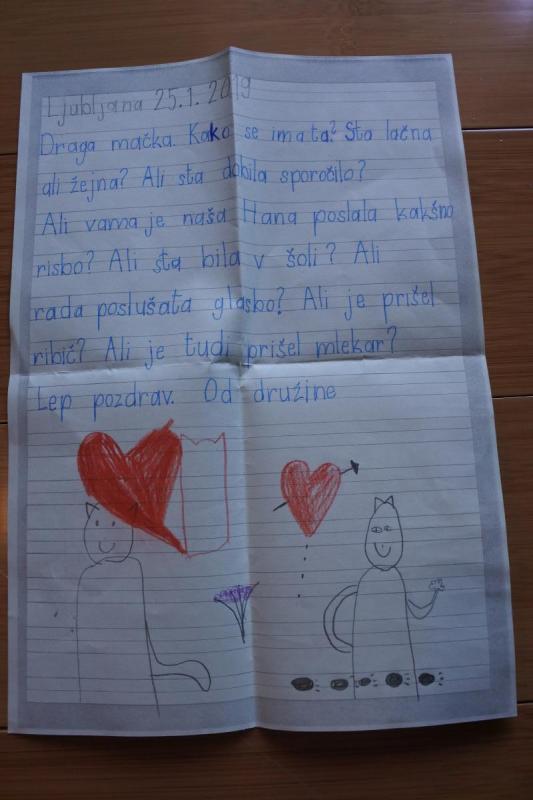 Ljubljana 25.1.2019
Draga mačka. Kako se imata? Sta lačna
ali žejna? Ali sta dobila sporočilo?
Ali vama je naša Hana poslala kakšno
risbo? Ali sta bila v šoli? Ali
rada poslušata glasbo? Ali je prišel
ribič? Ali je tudi prišel mlekar?
Lep pozdrav. Od družine